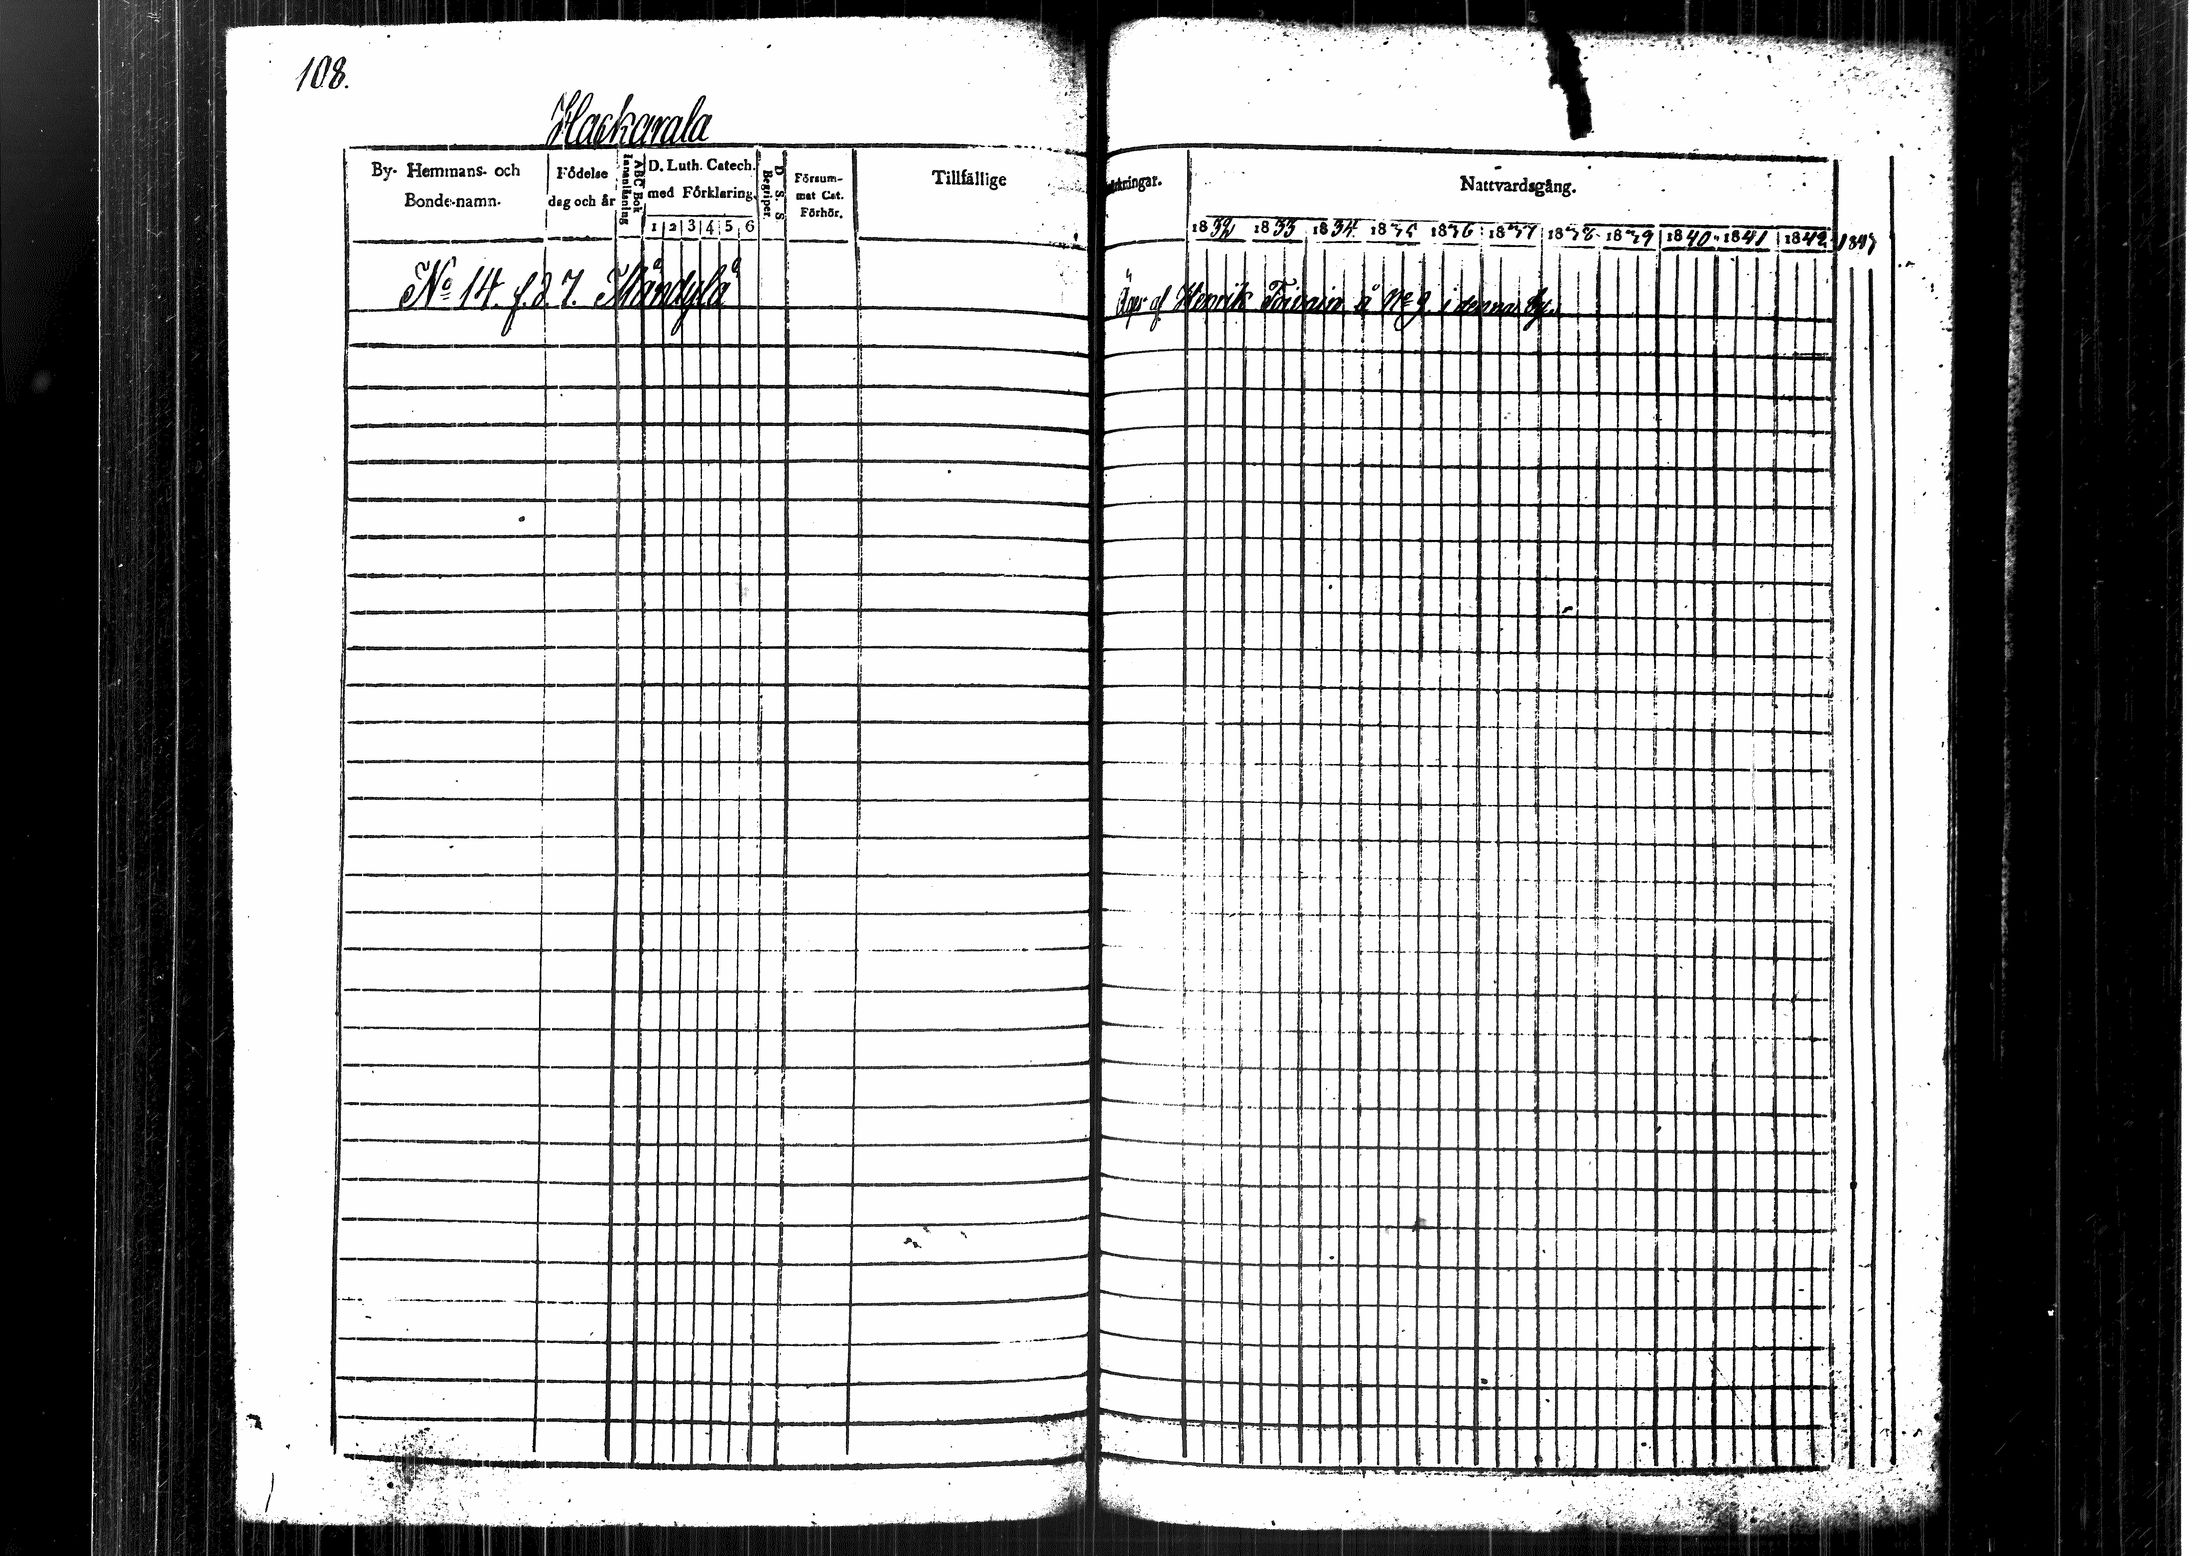 108.
Hackarala
By- Hemmans- och Bonde-namn.
Födelse dag och år
ABC Bok Innanläsning
D. Luth. Catech. med Förklaring.
1 2 3 4 5 6
D. S. S Begriper.
Försum-mat Cat. Förhör.
Tillfällige
Nattvardsgång.
1832 1833 1834 1835 1836 1837 1838 1839 1840 1841 1842
No 14. f.d 7. Måndylå
Henrik å No 9 i denna by.